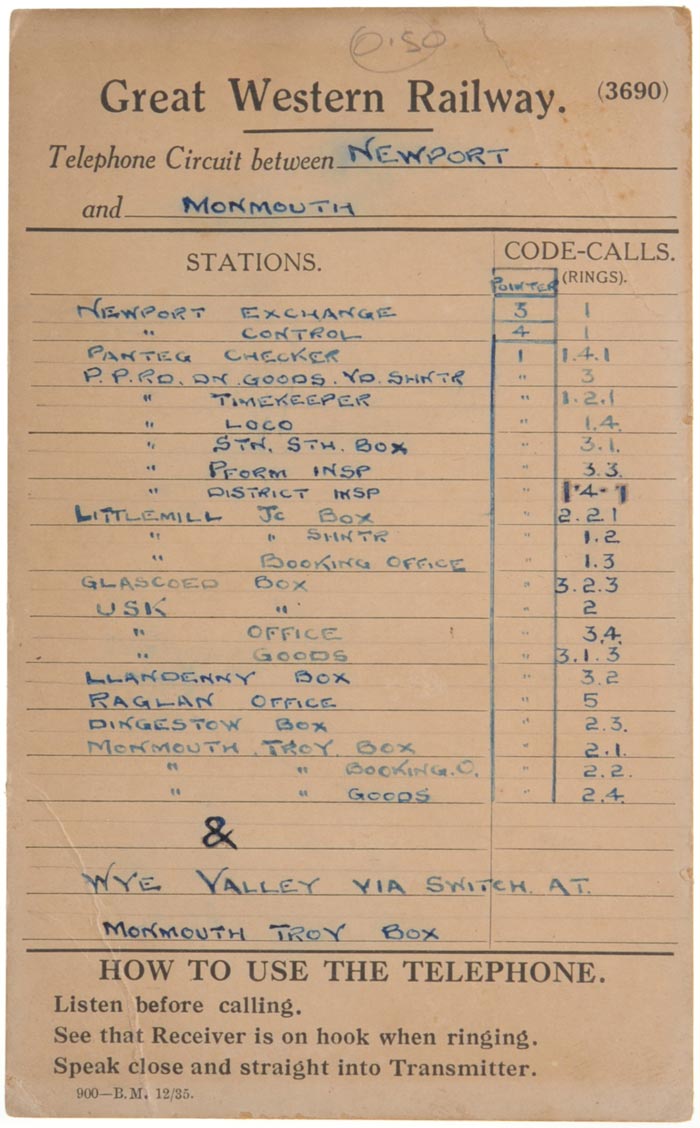 0.50
Great Western Railway. (3690)
Telephone Circuit between NEWPORT
and MONMOUTH
STATIONS. CODE-CALLS.
POINTER (RINGS).
NEWPORT EXCHANGE 3 1
" CONTROL 4 1
PANTEG CHECKER 1 1.4.1
P.P.RD. DN. GOODS. YD. SHNTR " 3
" TIMEKEEPER " 1.2.1
" LOCO " 1.4.
" STN. STH. BOX " 3.1.
" PFORM INSP " 3.3.
" DISTRICT INSP " 1.4.1
LITTLEMILL JC BOX " 2.2.1
" " SHNTR " 1.2
" BOOKING OFFICE " 1.3
GLASCOED BOX " 3.2.3
USK " " 2
" OFFICE " 3.4.
" GOODS " 3.1.3
LLANDENNY BOX " 3.2
RAGLAN OFFICE " 5
DINGESTOW BOX " 2.3.
MONMOUTH. TROY. BOX " 2.1.
" " BOOKING.O. " 2.2.
" " GOODS " 2.4.
&
WYE VALLEY VIA SWITCH. AT.
MONMOUTH TROY BOX
HOW TO USE THE TELEPHONE.
Listen before calling.
See that Receiver is on hook when ringing.
Speak close and straight into Transmitter.
900—B.M. 12/35.